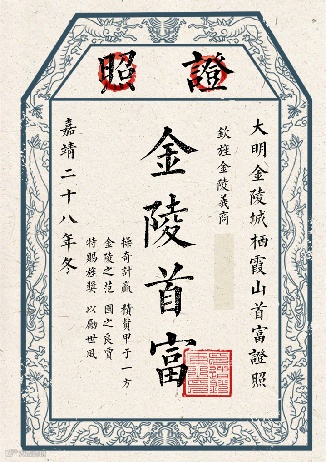 證照
大明金陵城栖霞山首富證照
欽旌金陵義商
金陵首富
操奇計贏 積貲甲于一方
金陵之范 國之良賈
特賜旌獎 以勵世風
嘉靖二十八年冬